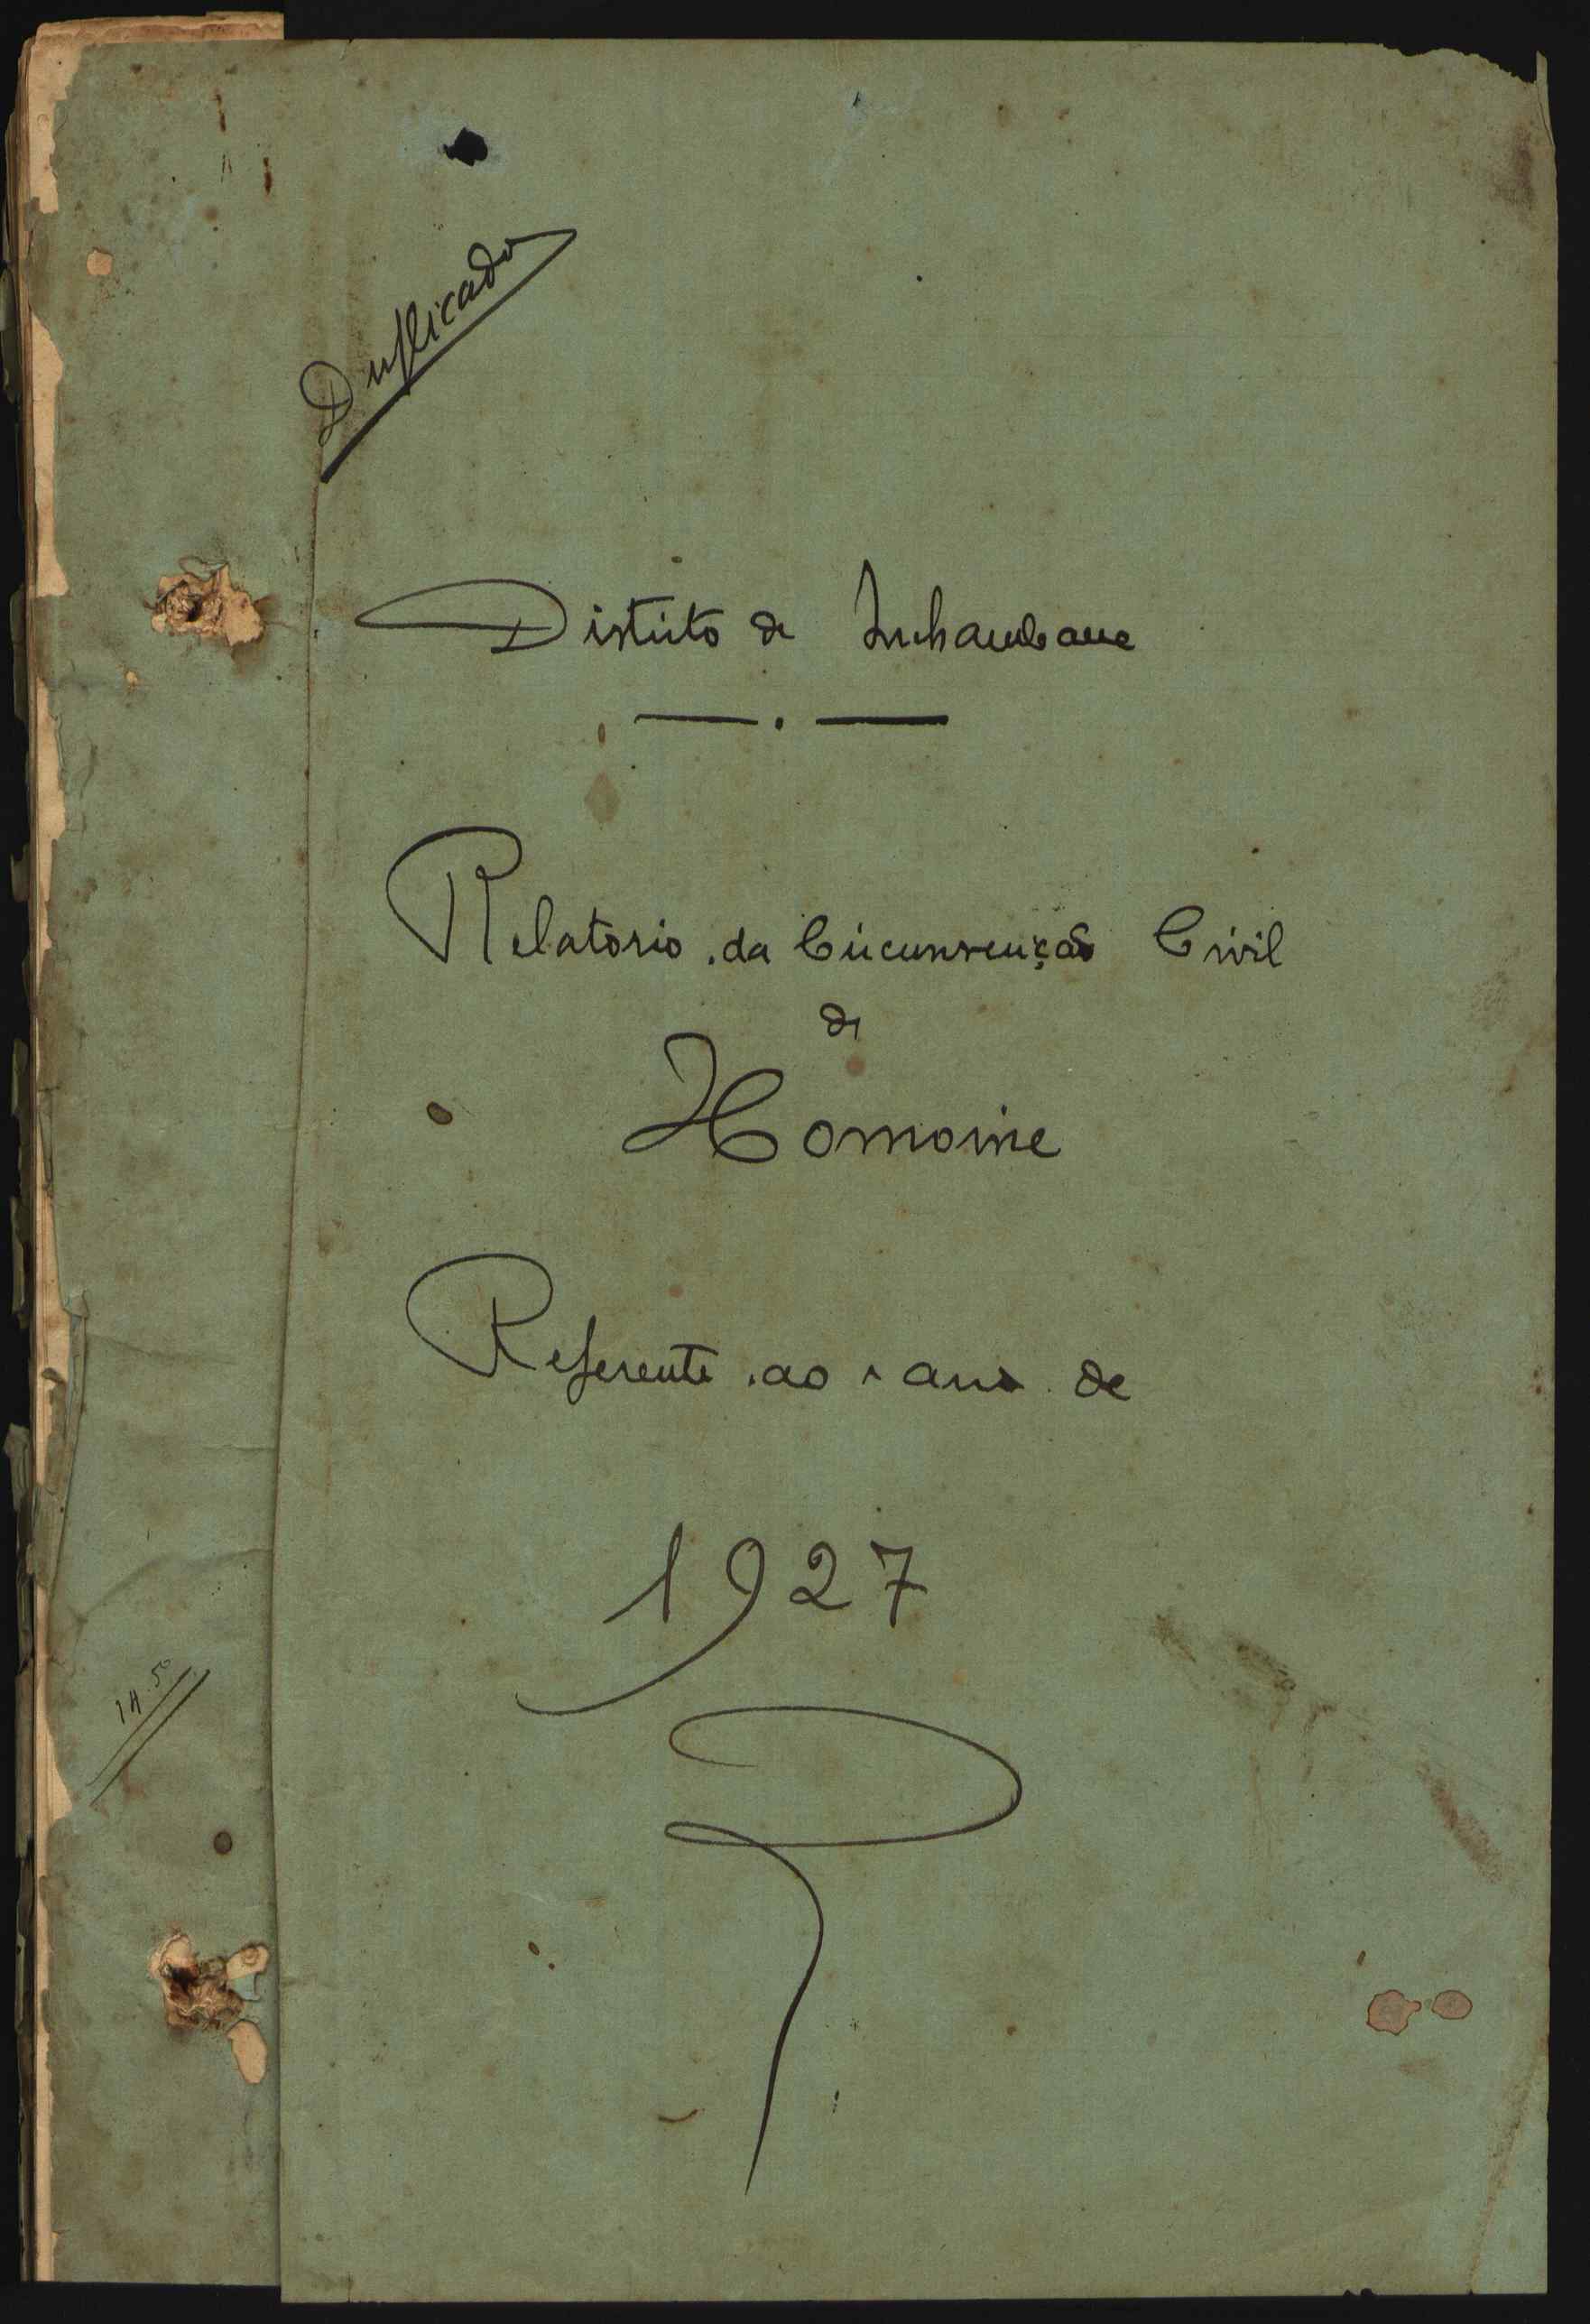 Duplicado
Distrito de Inhambane
Relatorio da Circunscrição Civil
de
Homoine
Referente ao ano de
1927